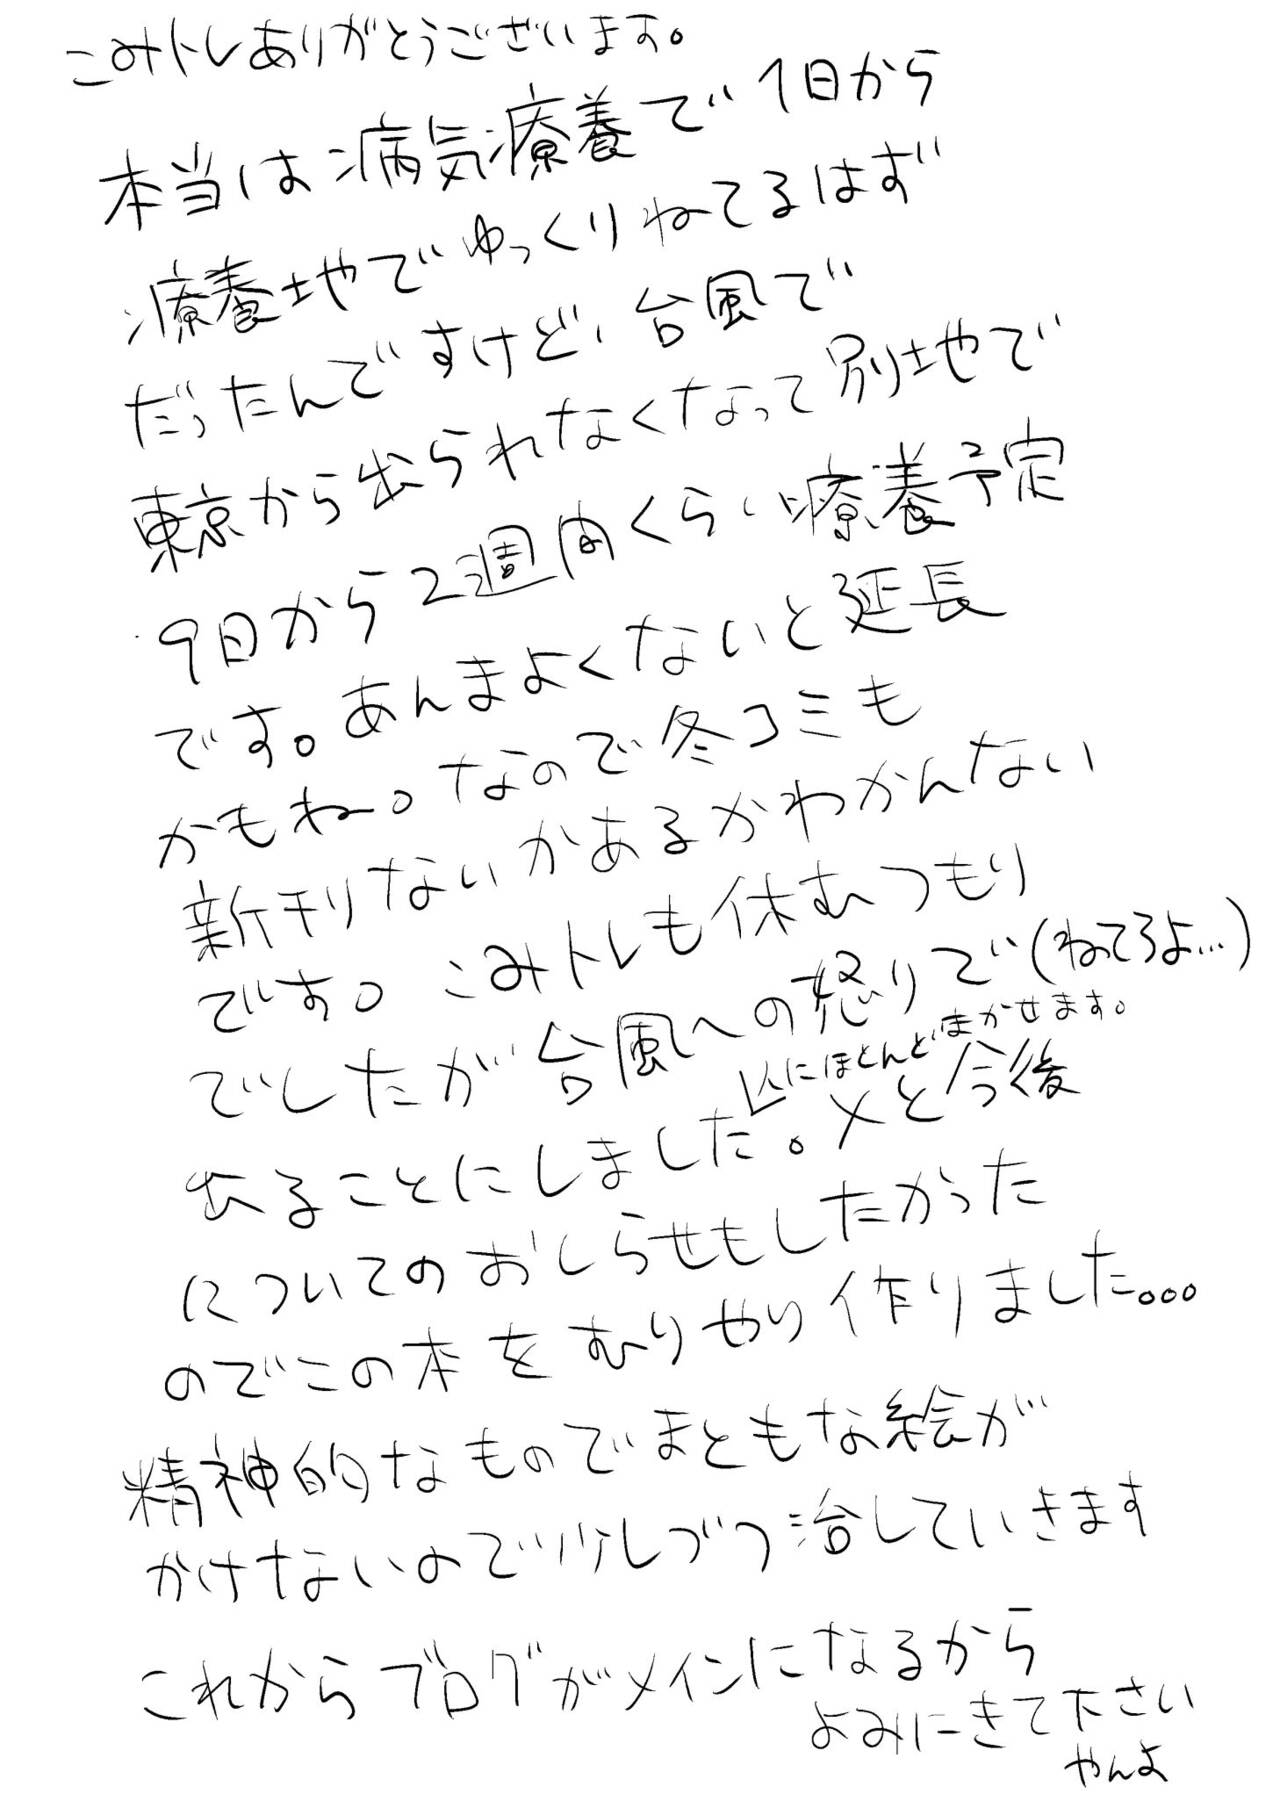 こみトレありがとうございます。
本当は病気療養で1日から
療養地やでゆっくりねてるはず
だったんですけど、台風で
東京から出られなくなって別地で
9日から2週間くらい療養予定
です。あんまよくないと延長
かもね。なので冬コミも
新刊ないかあるかわかんない
です。こみトレも休むつもり
でしたが台風への怒りで(ねてろよ…)
出ることにしました。メと今後
人にほとんどまかせます。
についてのおしらせもしたかった
のでこの本をむりやり作りました。。。
精神的なものでまともな絵が
かけないので少しづつ治していきます
これからブログがメインになるから
よみにきて下さい
やんよ